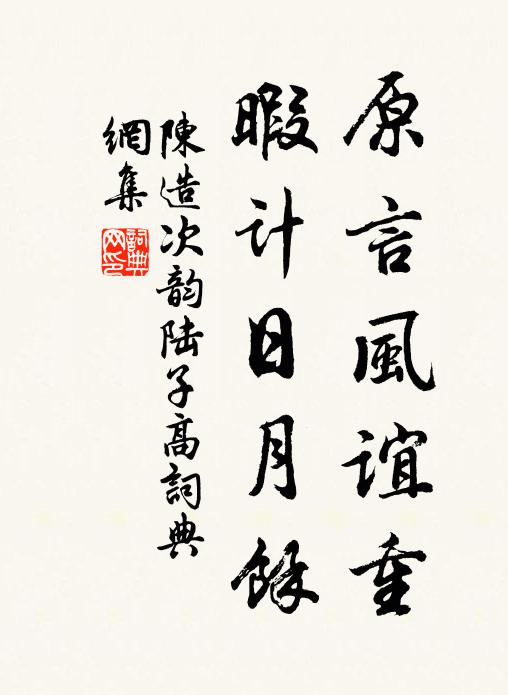 原言風誼重
暇计日月餘
陳造次韵陆子高詞典
網集
詞典网印